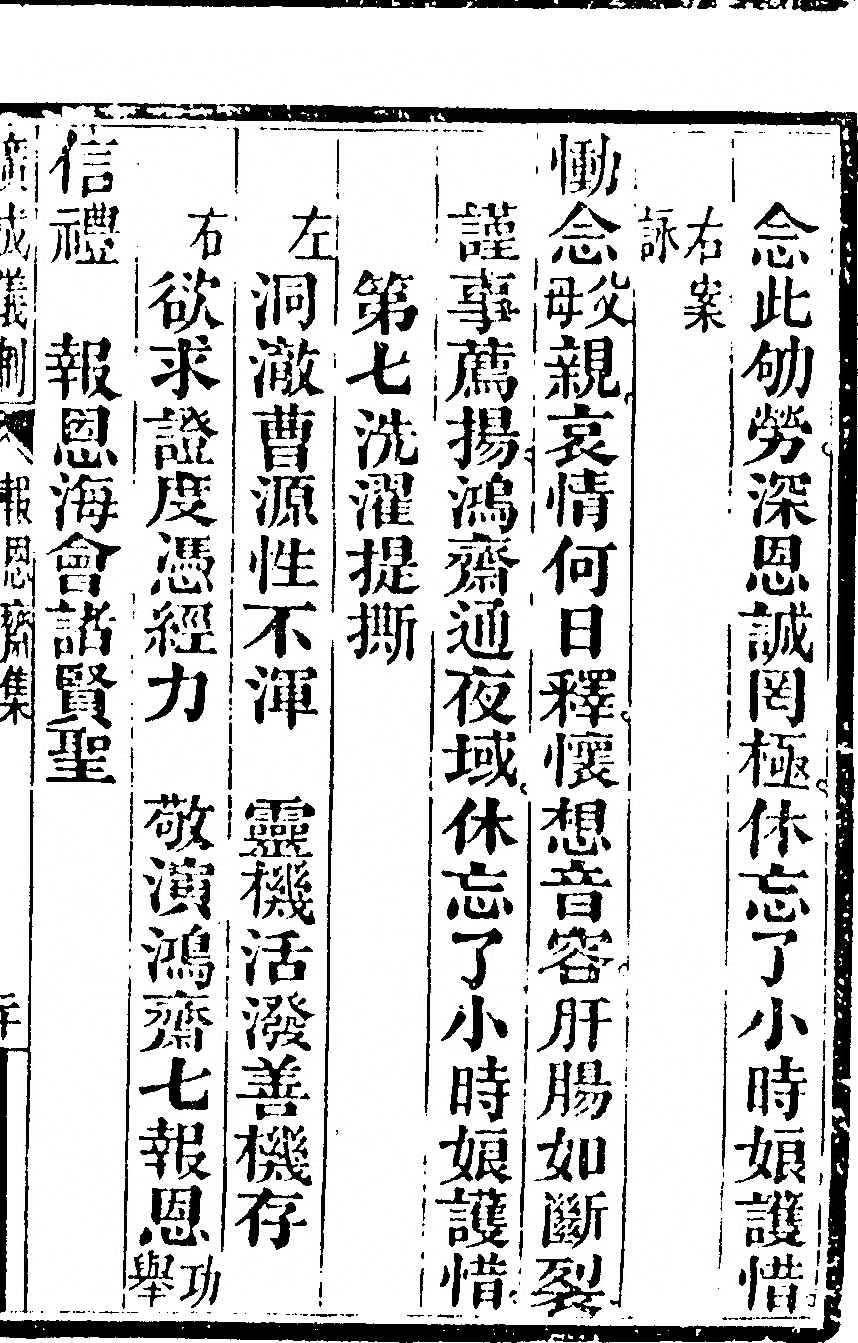 念此劬勞深恩誠罔極休忘了小時娘護惜
右案
詠
慟念父母親哀情何日釋懷想音容肝腸如斷裂
謹事薦揚鴻齋通夜域休忘了小時娘護惜
第七洗濯提撕
左 洞澈曹源性不渾 靈機活潑善機存
右 欲求證度憑經力 敬演鴻齋七報恩功舉
信禮 報恩海會諸賢聖
廣成儀制 報恩齋集